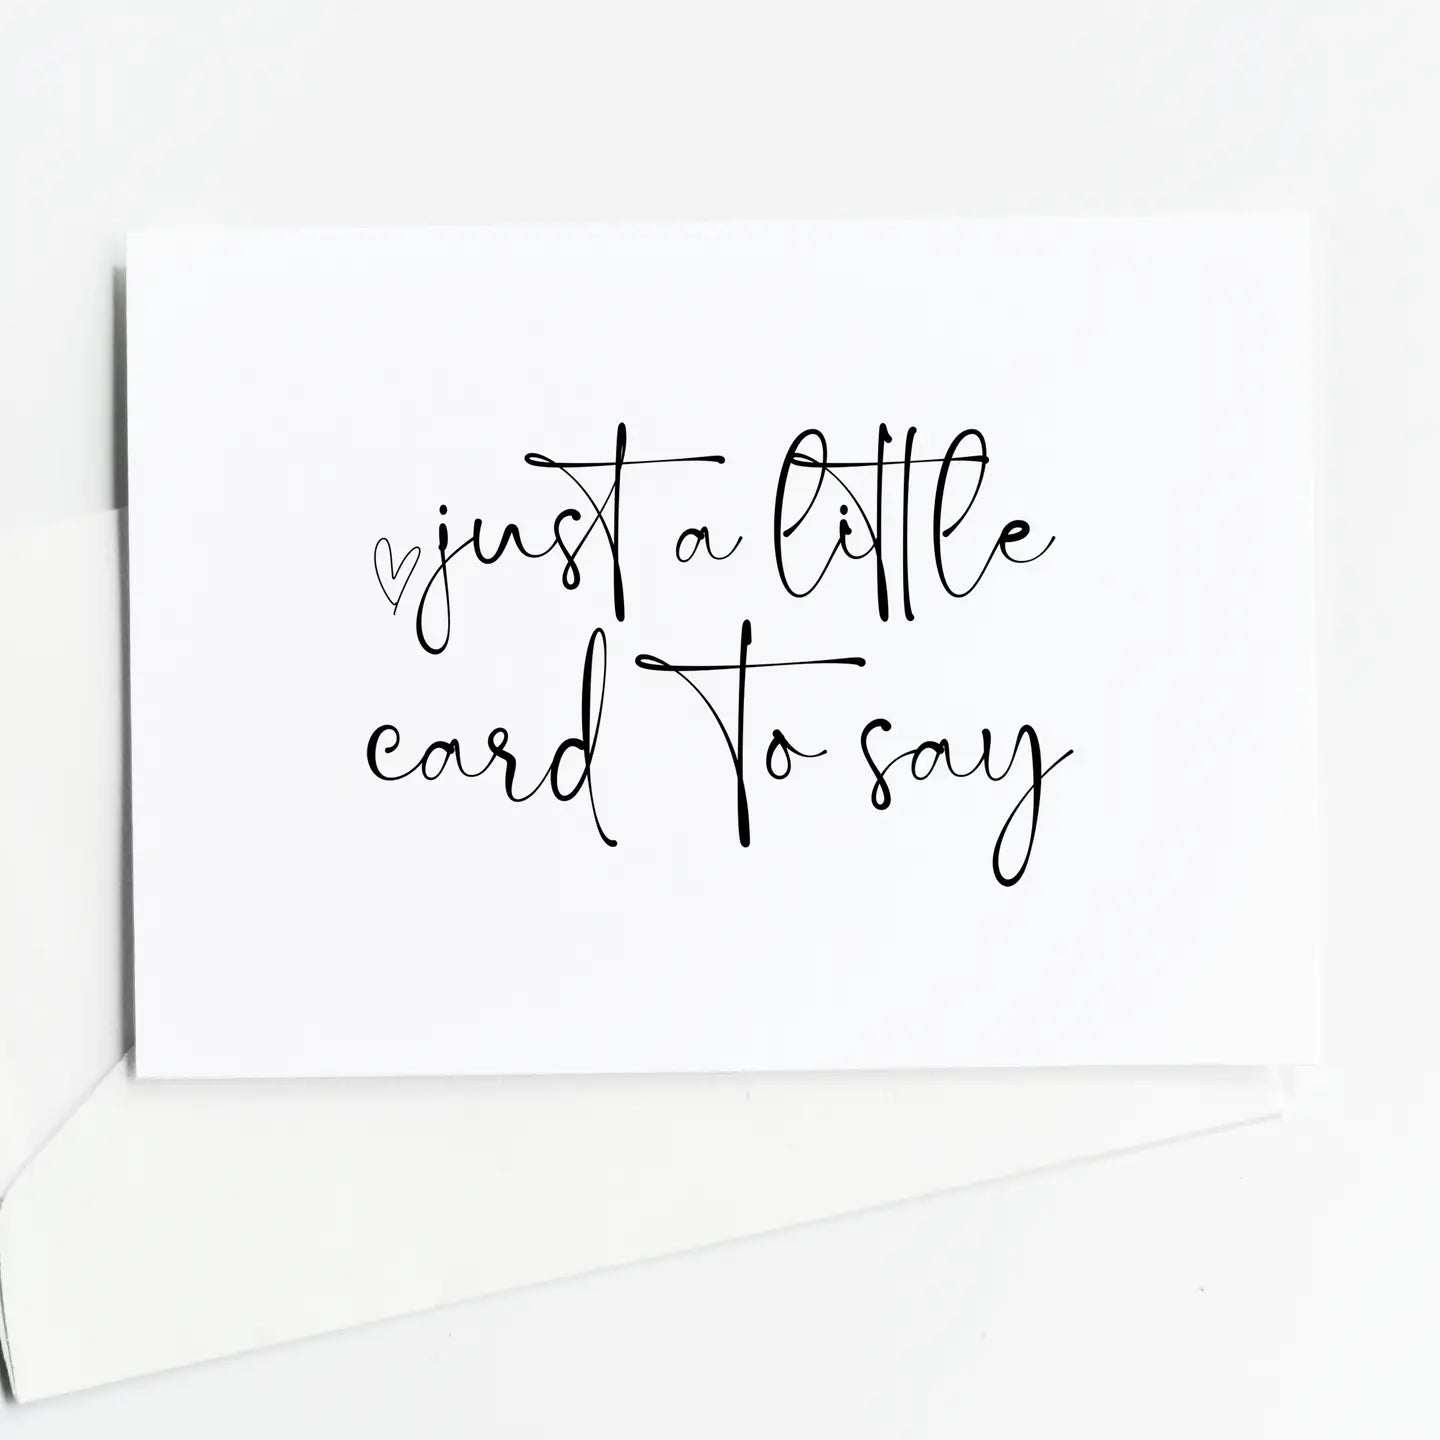 just a little
card to say